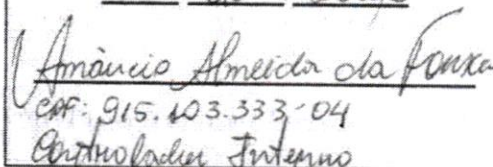 Amâncio Almeida da Fonseca
CPF: 915.103.333-04
Controlador Interno